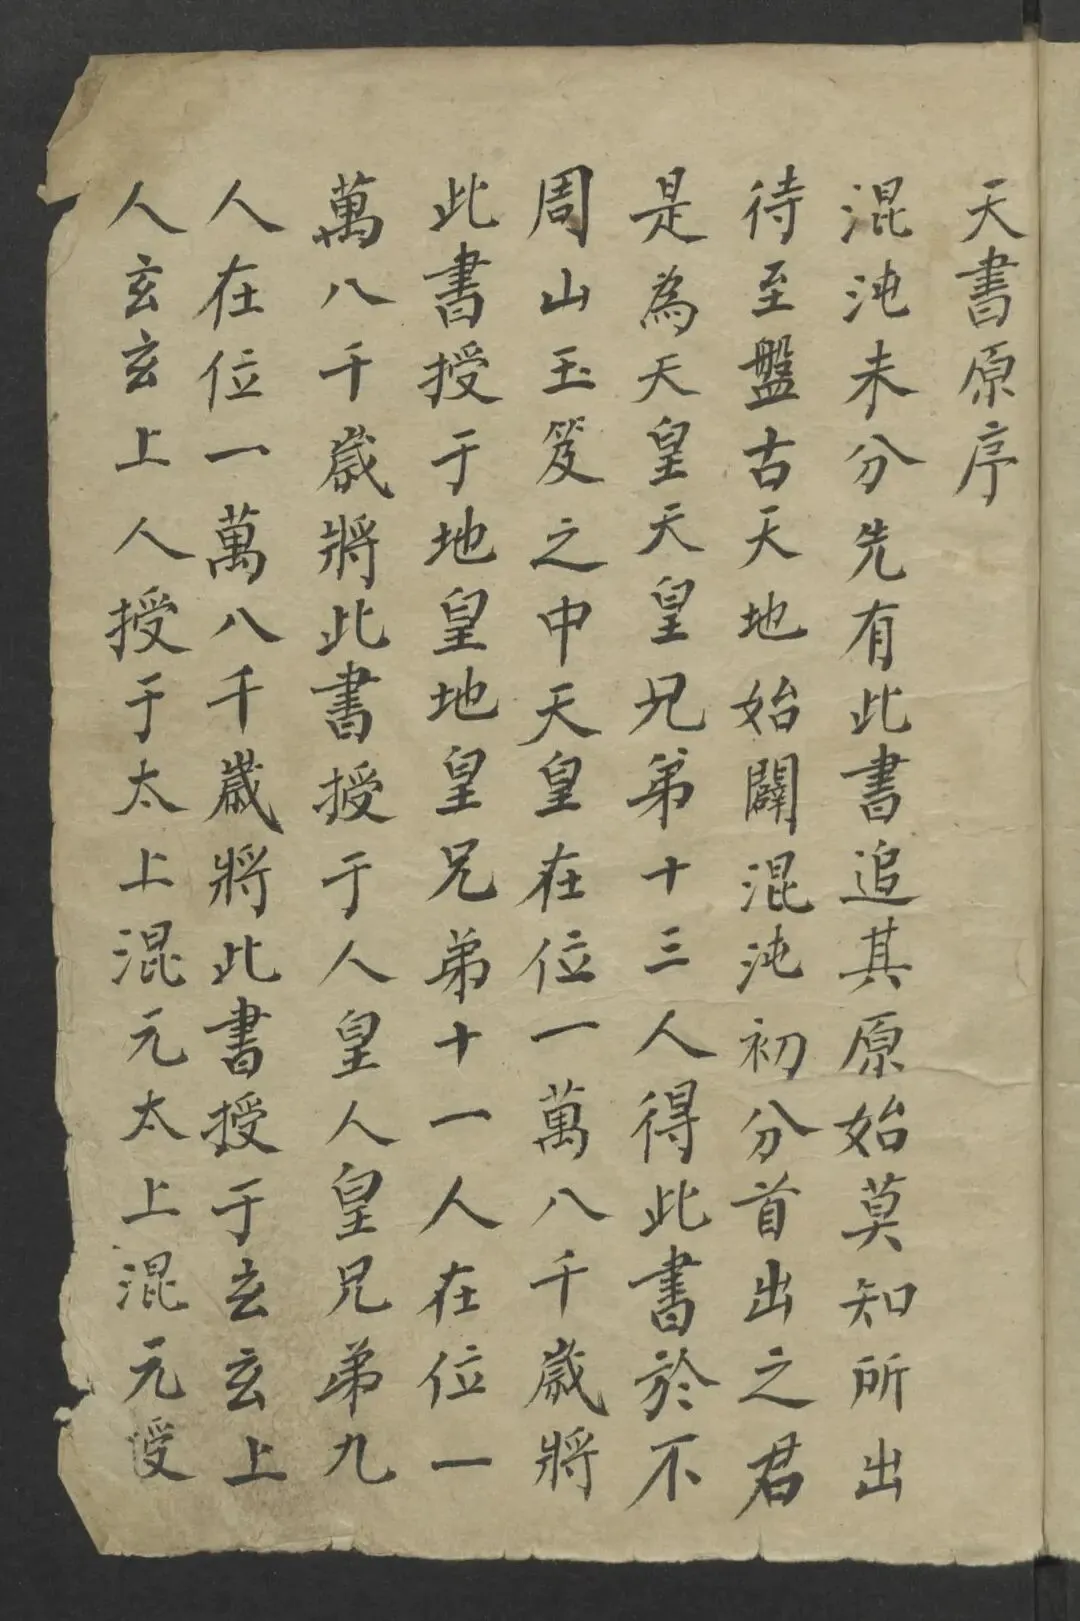 天書原序
混沌未分先有此書追其原始莫知所出
待至盤古天地始闢混沌初分首出之君
是為天皇天皇兄弟十三人得此書於不
周山玉笈之中天皇在位一萬八千歲將
此書授于地皇地皇兄弟十一人在位一
萬八千歲將此書授于人皇人皇兄弟九
人在位一萬八千歲將此書授于玄玄上
人玄玄上人授于太上混元太上混元授